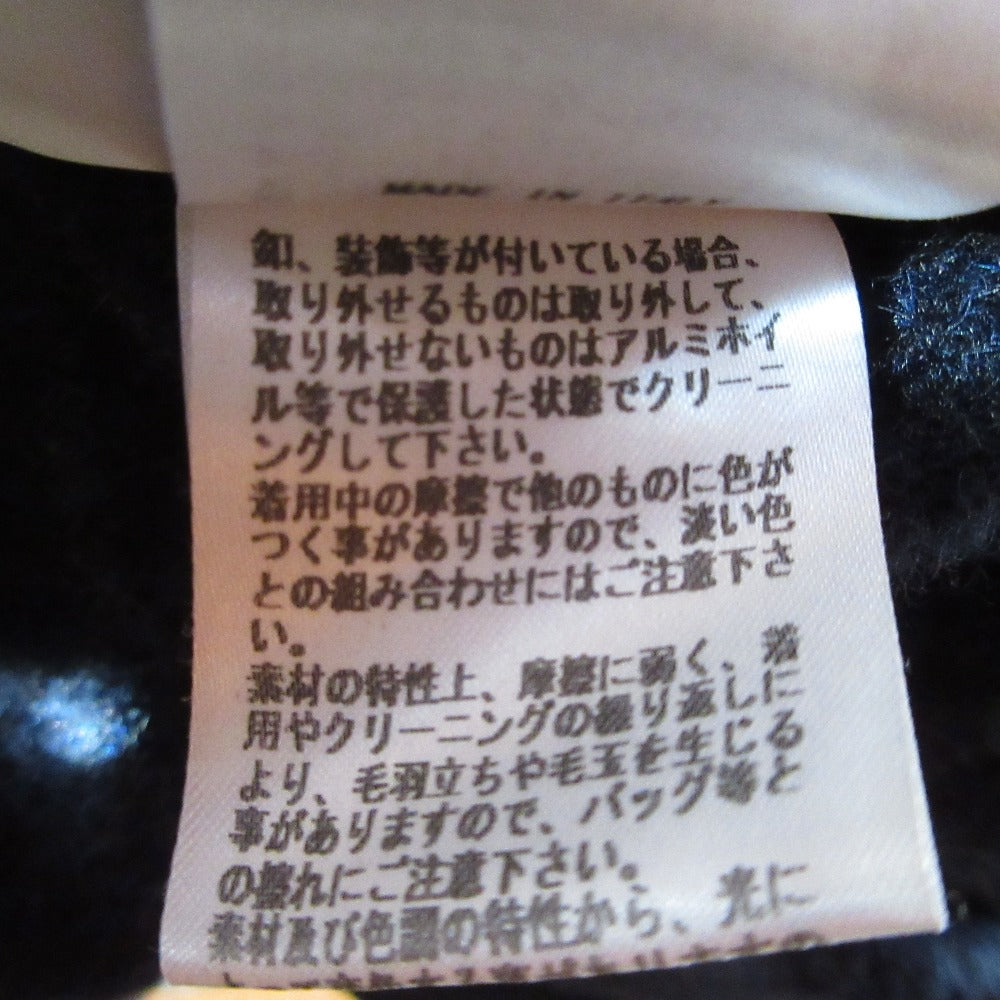 MADE IN ITALY
釦、装飾等が付いている場合、
取り外せるものは取り外して、
取り外せないものはアルミホイ
ル等で保護した状態でクリーニ
ングして下さい。
着用中の摩擦で他のものに色が
つく事がありますので、淡い色
との組み合わせにはご注意下さ
い。
素材の特性上、摩擦に弱く、着
用やクリーニングの繰り返しに
より、毛羽立ちや毛玉を生じる
事がありますので、バッグ等と
の擦れにご注意下さい。
素材及び色調の特性から、光に